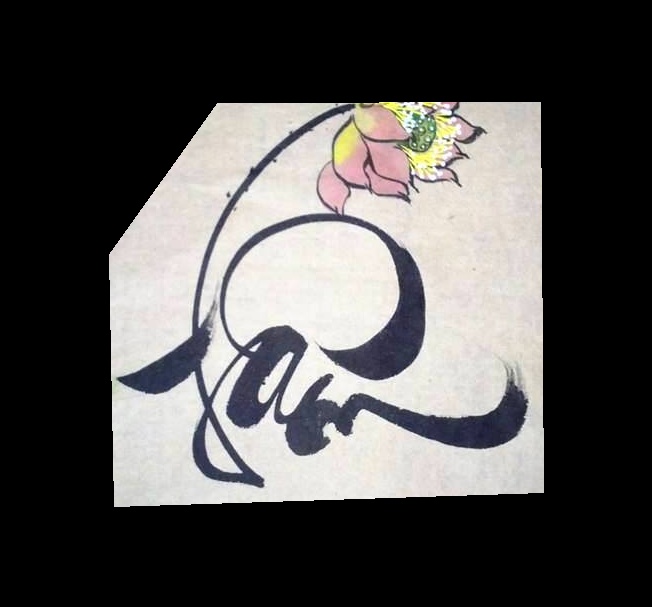 Tâm